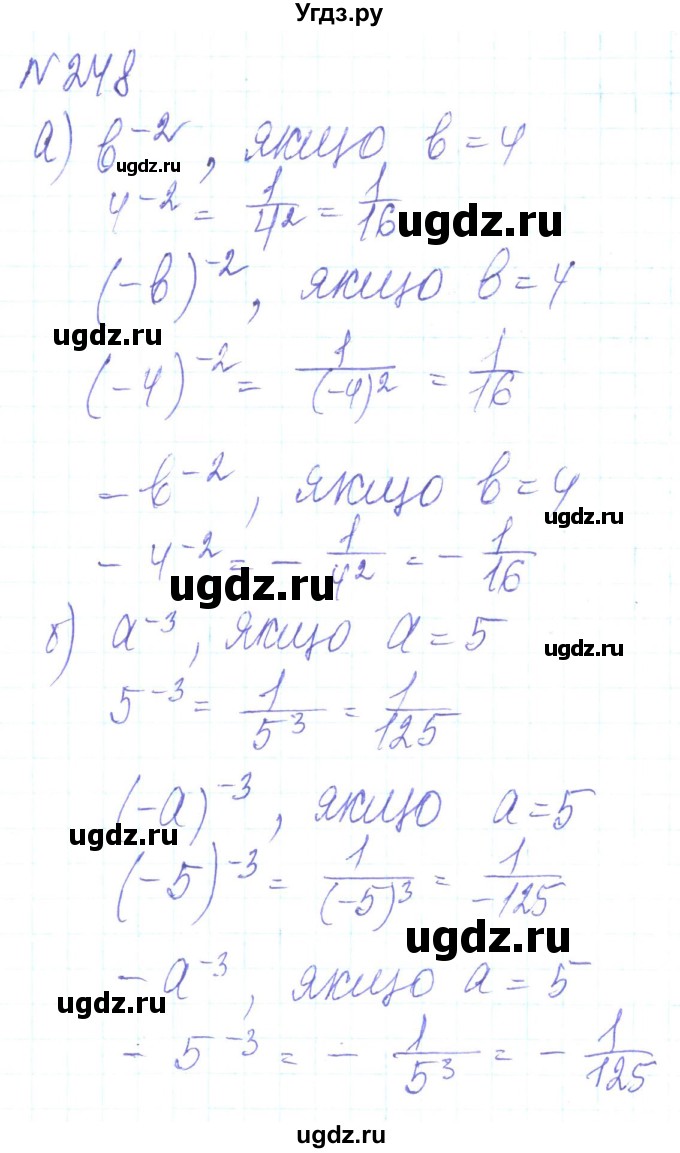 Угдз.ру
N 248
а) b⁻², якщо b = 4
ugdz.ru
4⁻² = 1/4² = 1/16
ugdz.ru
(-b)⁻², якщо b = 4
ugdz.ru
(-4)⁻² = 1/(-4)² = 1/16
- b⁻², якщо b = 4
ugdz.ru
- 4⁻² = - 1/4² = - 1/16
ugdz.ru
б) a⁻³, якщо a = 5
ugdz.ru
5⁻³ = 1/5³ = 1/125
(-a)⁻³, якщо a = 5
ugdz.ru
(-5)⁻³ = 1/(-5)³ = 1/-125
ugdz.ru
- a⁻³, якщо a = 5
ugdz.ru
- 5⁻³ = - 1/5³ = - 1/125
ugdz.ru